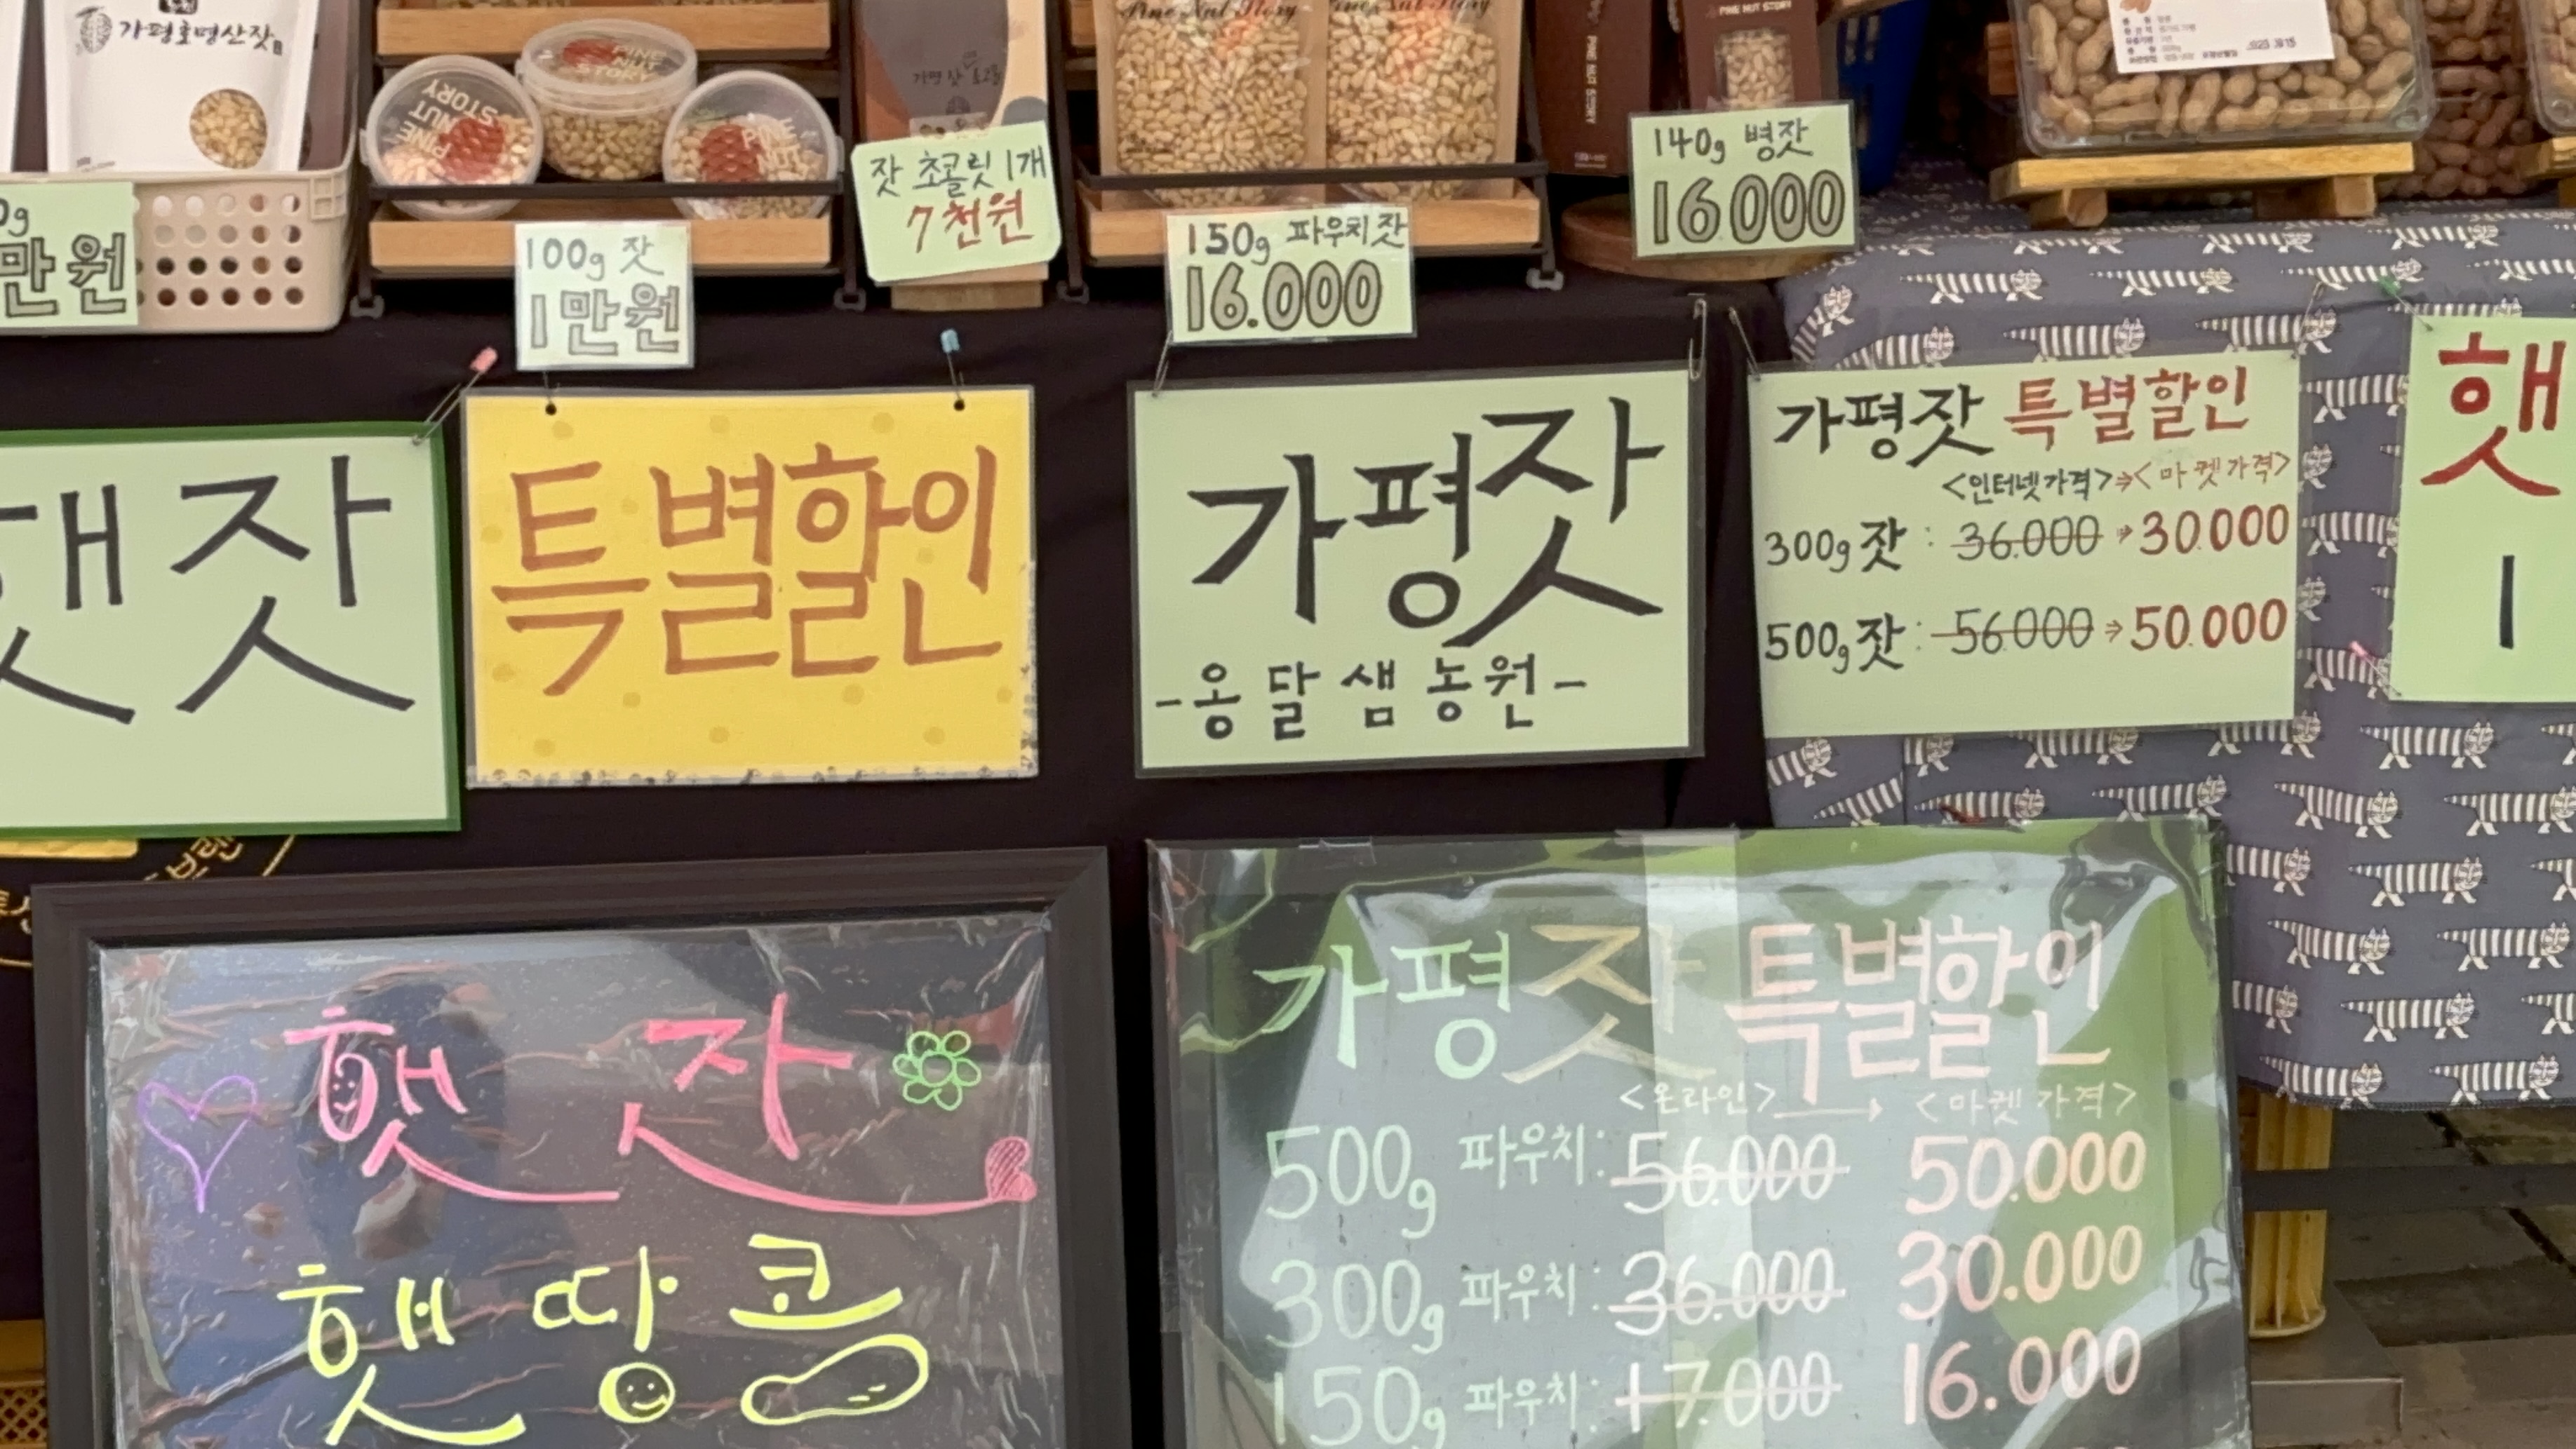 가평호명산잣
PINE NUT STORY
PINE NUT STORY
Pine Nut Story
PINE NUT STORY
만원
100g 잣
1만원
잣 초콜릿 1개
7천원
150g 파우치잣
16.000
140g 병잣
16000
햇잣
특별할인
가평잣
-옹달샘농원-
가평잣 특별할인
<인터넷가격>⇒<마켓가격>
300g 잣 : 36.000 ⇒ 30.000
500g 잣 : 56.000 ⇒ 50.000
햇
1
햇 잣
햇 땅 콩
가평잣 특별할인
<온라인> → <마켓가격>
500g 파우치: 56.000 50.000
300g 파우치: 36.000 30.000
150g 파우치: 17.000 16.000